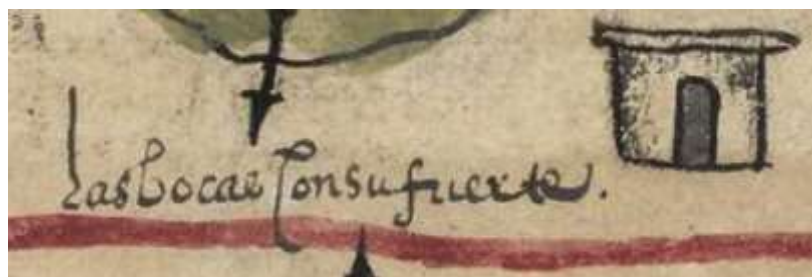 las bocas Con su fuerte.